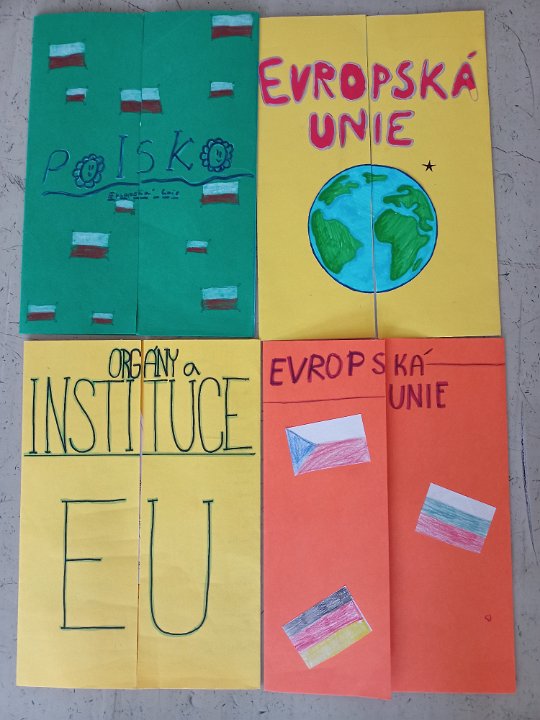 POlSKO
Evropská Unie
EVROPSKÁ
UNIE
ORGÁNY a
INSTITUCE
EU
EVROPSKÁ
UNIE